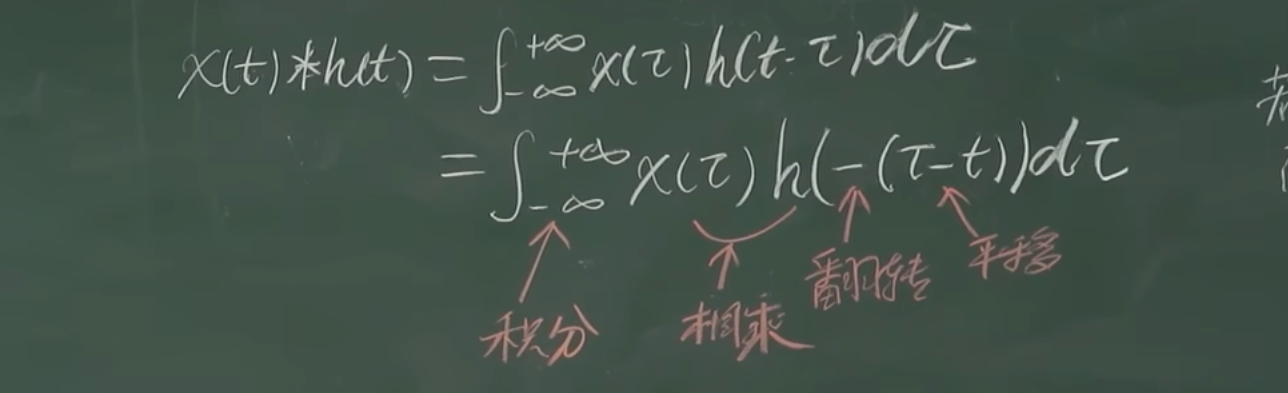 x(t)*h(t) = ∫_{-∞}^{+∞} x(τ)h(t-τ)dτ
= ∫_{-∞}^{+∞} x(τ)h(-(τ-t))dτ
积分 相乘 翻转 平移